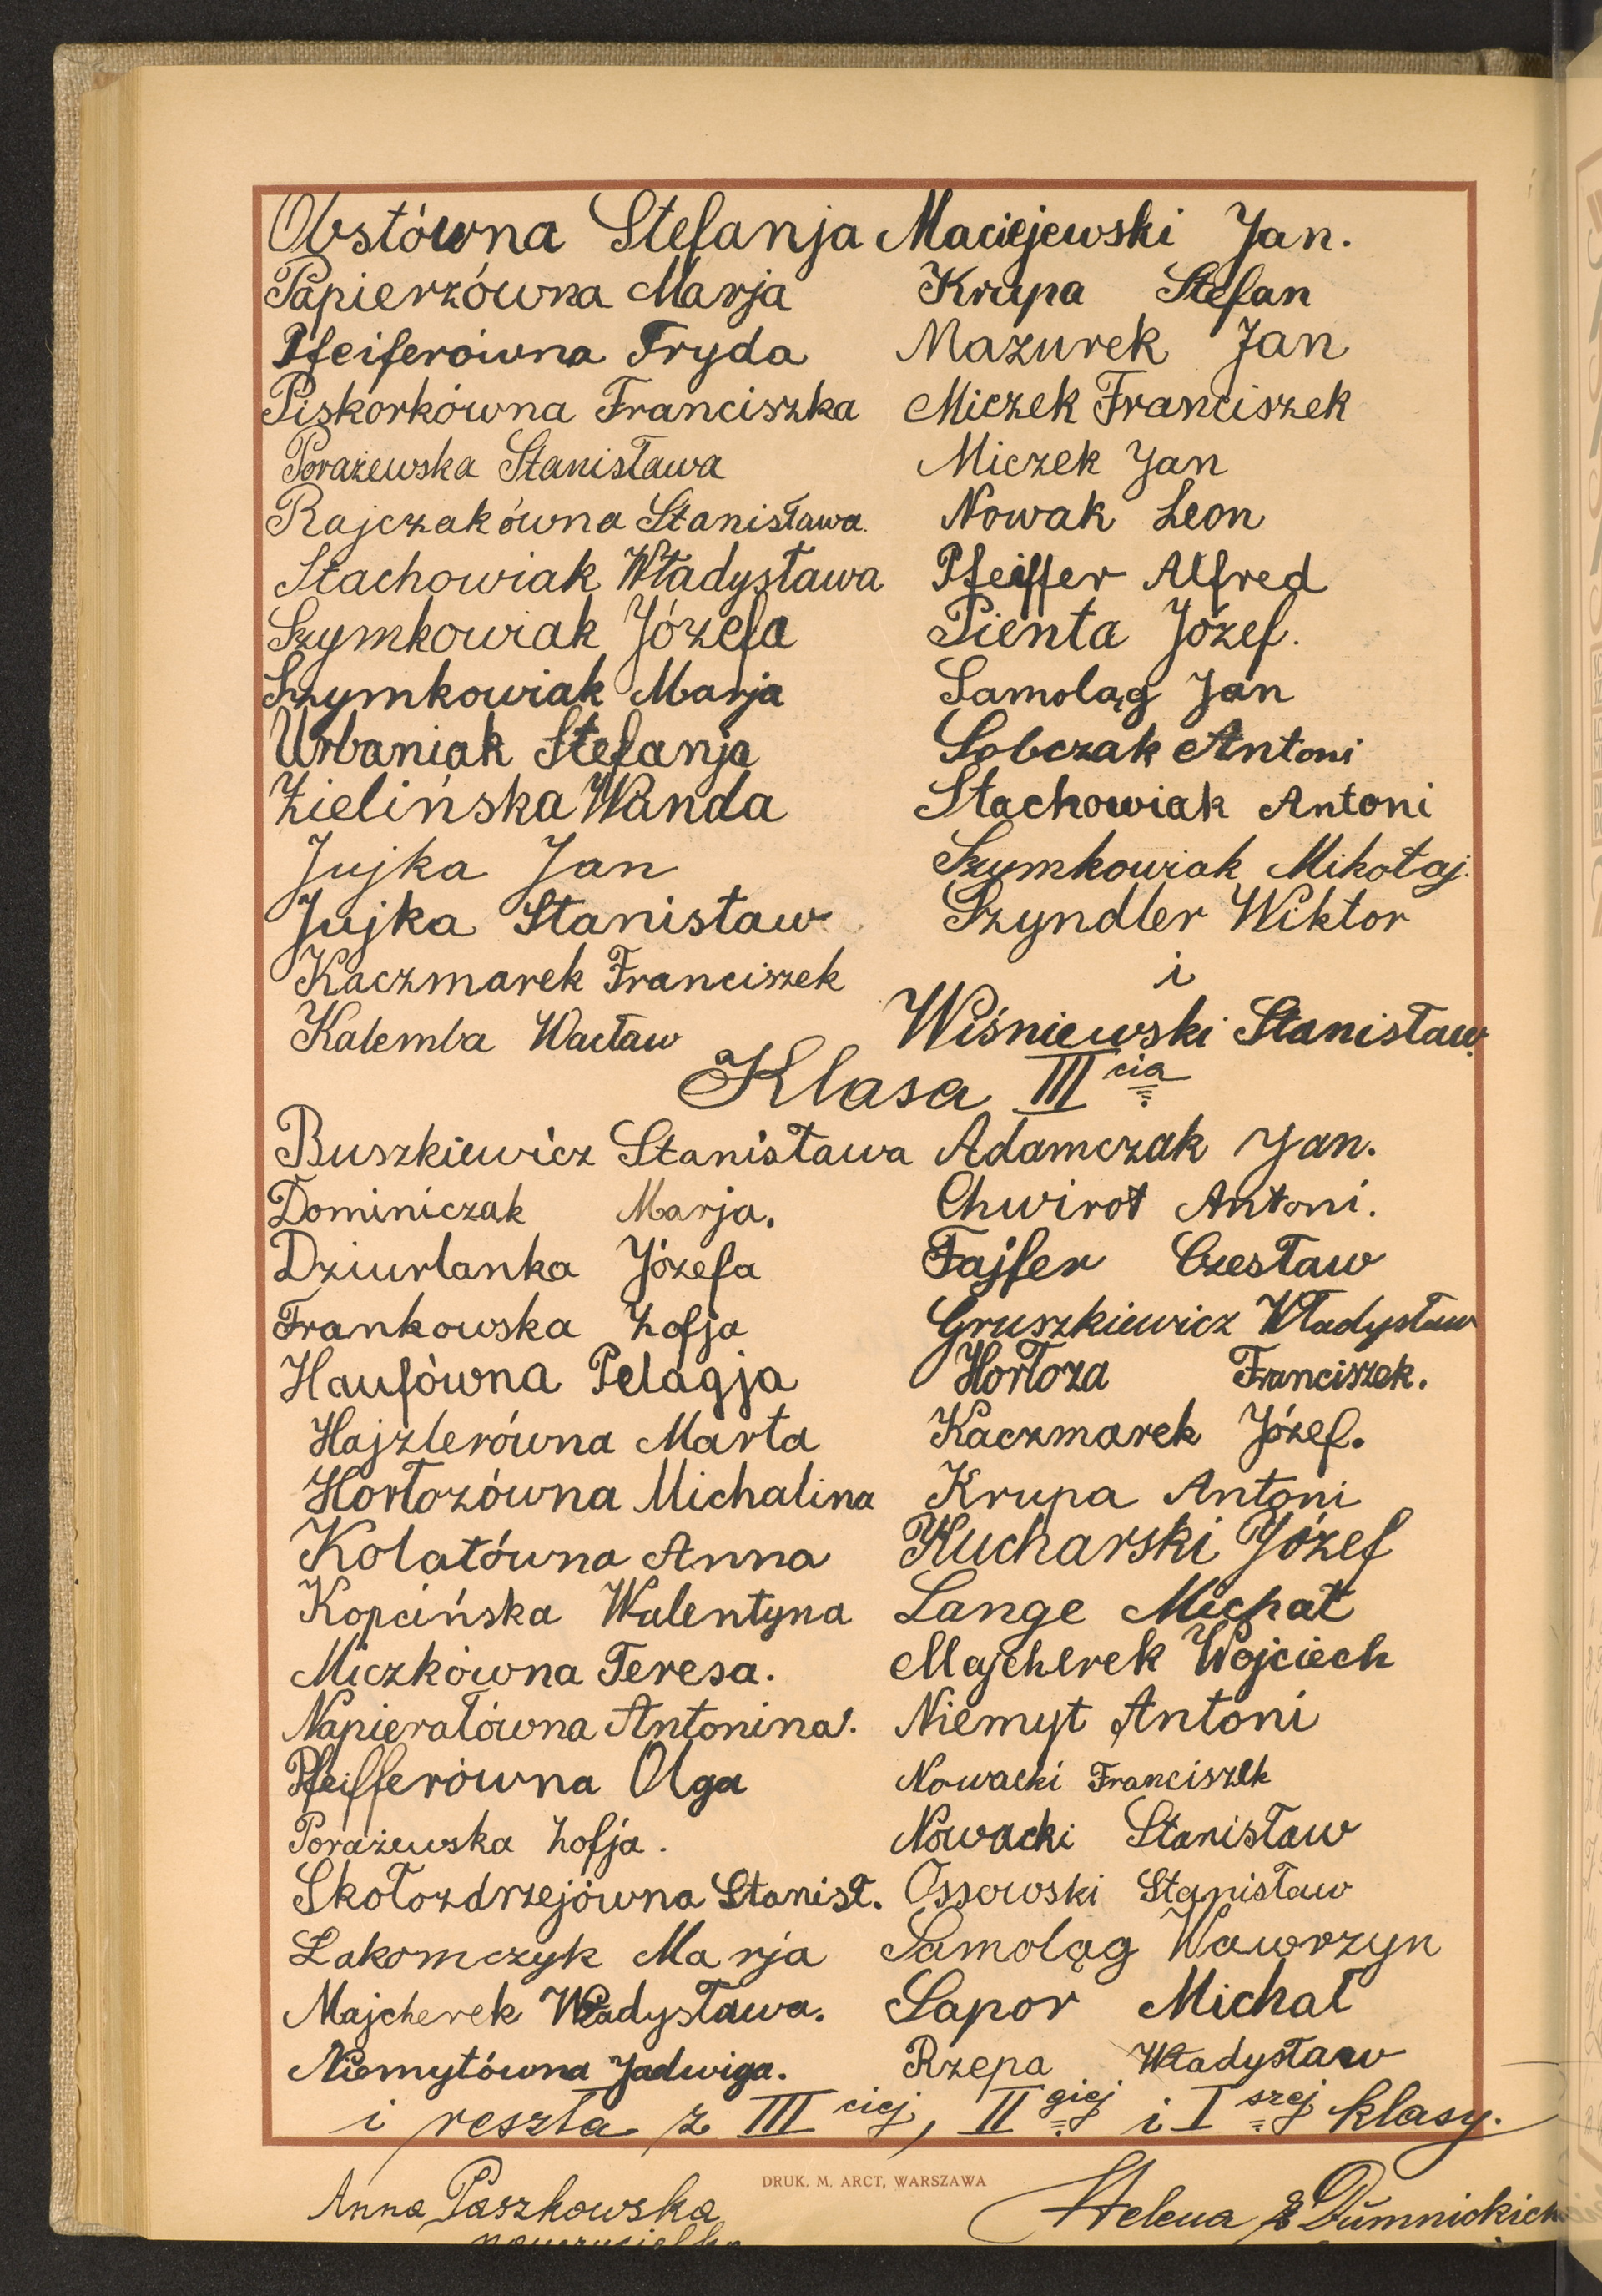 Obstówna Stefanja
Papierzówna Marja
Pfeiferówna Fryda
Piskorkówna Franciszka
Porażewska Stanisława
Rajczakówna Stanisława.
Stachowiak Władysława
Szymkowiak Józefa
Szymkowiak Marja
Urbaniak Stefanja
Zielińska Wanda
Jujka Jan
Jujka Stanisław
Kaczmarek Franciszek
Kalemba Wacław
Maciejewski Jan.
Krupa Stefan
Mazurek Jan
Miczek Franciszek
Miczek Jan
Nowak Leon
Pfeiffer Alfred
Pienta Józef.
Samoląg Jan
Sobczak Antoni
Stachowiak Antoni
Szymkowiak Mikołaj.
Szyndler Wiktor
i
Wiśniewski Stanisław.
Klasa III cia
Buszkiewicz Stanisława
Dominiczak Marja.
Dziurlanka Józefa
Frankowska Zofja
Haufówna Pelagja
Hajzlerówna Marta
Hortozówna Michalina
Kolatówna Anna
Kopcińska Walentyna
Miczkówna Teresa.
Napierałówna Antonina.
Pfeifferówna Olga
Porażewska Zofja.
Skołozdrzejówna Stanisł.
Lakomczyk Marja
Majcherek Władysława.
Niemytówna Jadwiga.
Adamczak Jan.
Chwirot Antoni.
Fajfer Czesław
Gruszkiewicz Władysław
Hortoza Franciszek.
Kaczmarek Józef.
Krupa Antoni
Kucharski Józef
Lange Michał
Majcherek Wojciech
Niemyt Antoni
Nowacki Franciszek
Nowacki Stanisław
Ossowski Stanisław
Samoląg Wawrzyn
Sapor Michał
Rzepa Władysław
i reszta z III ciej, II giej i I szej klasy.
DRUK. M. ARCT, WARSZAWA
Anna Paszkowska
nauczycielka
Helena z Dumnickich